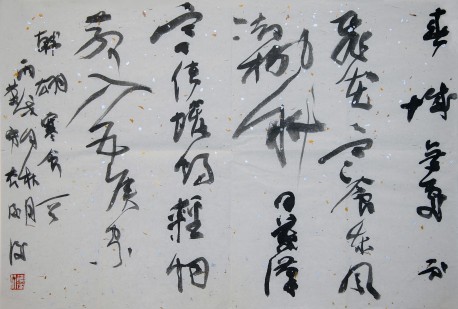 春城無處不
飛花寒食東風
御柳斜日暮漢
宮傳蠟燭輕烟
散入五侯家
韓翃寒食